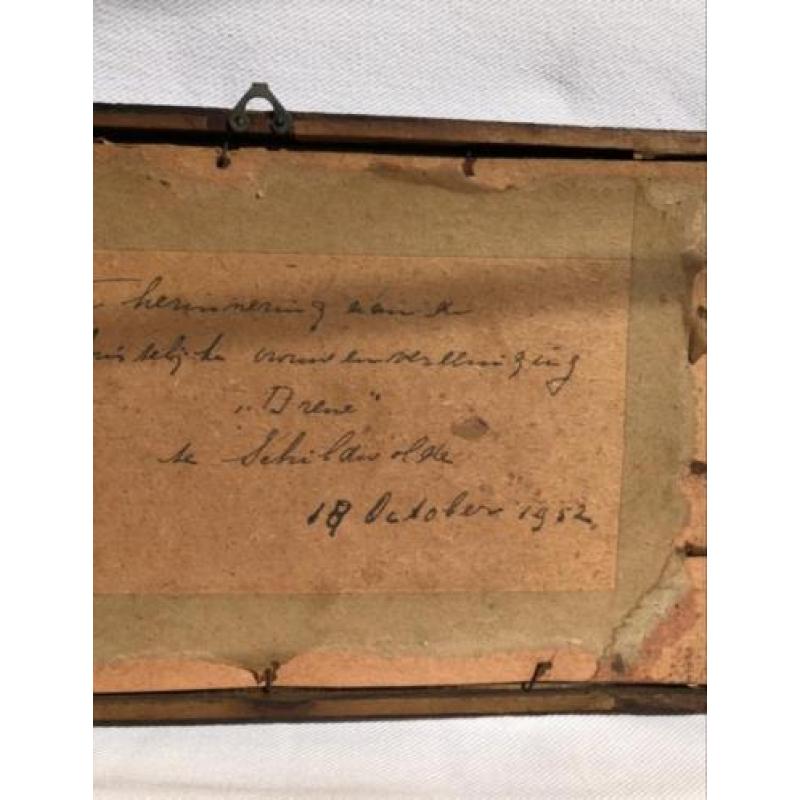 herinnering aan de
vrouwenvereeniging
„Irene"
te Schildwolde
18 October 1952.